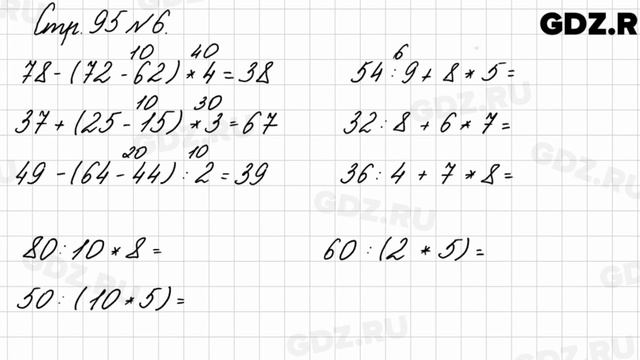 Стр. 95 №6.
GDZ.R
10 40
78 - (72 - 62) * 4 = 38
10 30
37 + (25 - 15) * 3 = 67
20 10
49 - (64 - 44) : 2 = 39
80 : 10 * 8 =
50 : (10 * 5) =
6
54 : 9 + 8 * 5 =
32 : 8 + 6 * 7 =
36 : 4 + 7 * 8 =
60 : (2 * 5) =
GDZ.RU
GDZ.RU
GDZ.RU
GDZ.RU
GDZ.RU